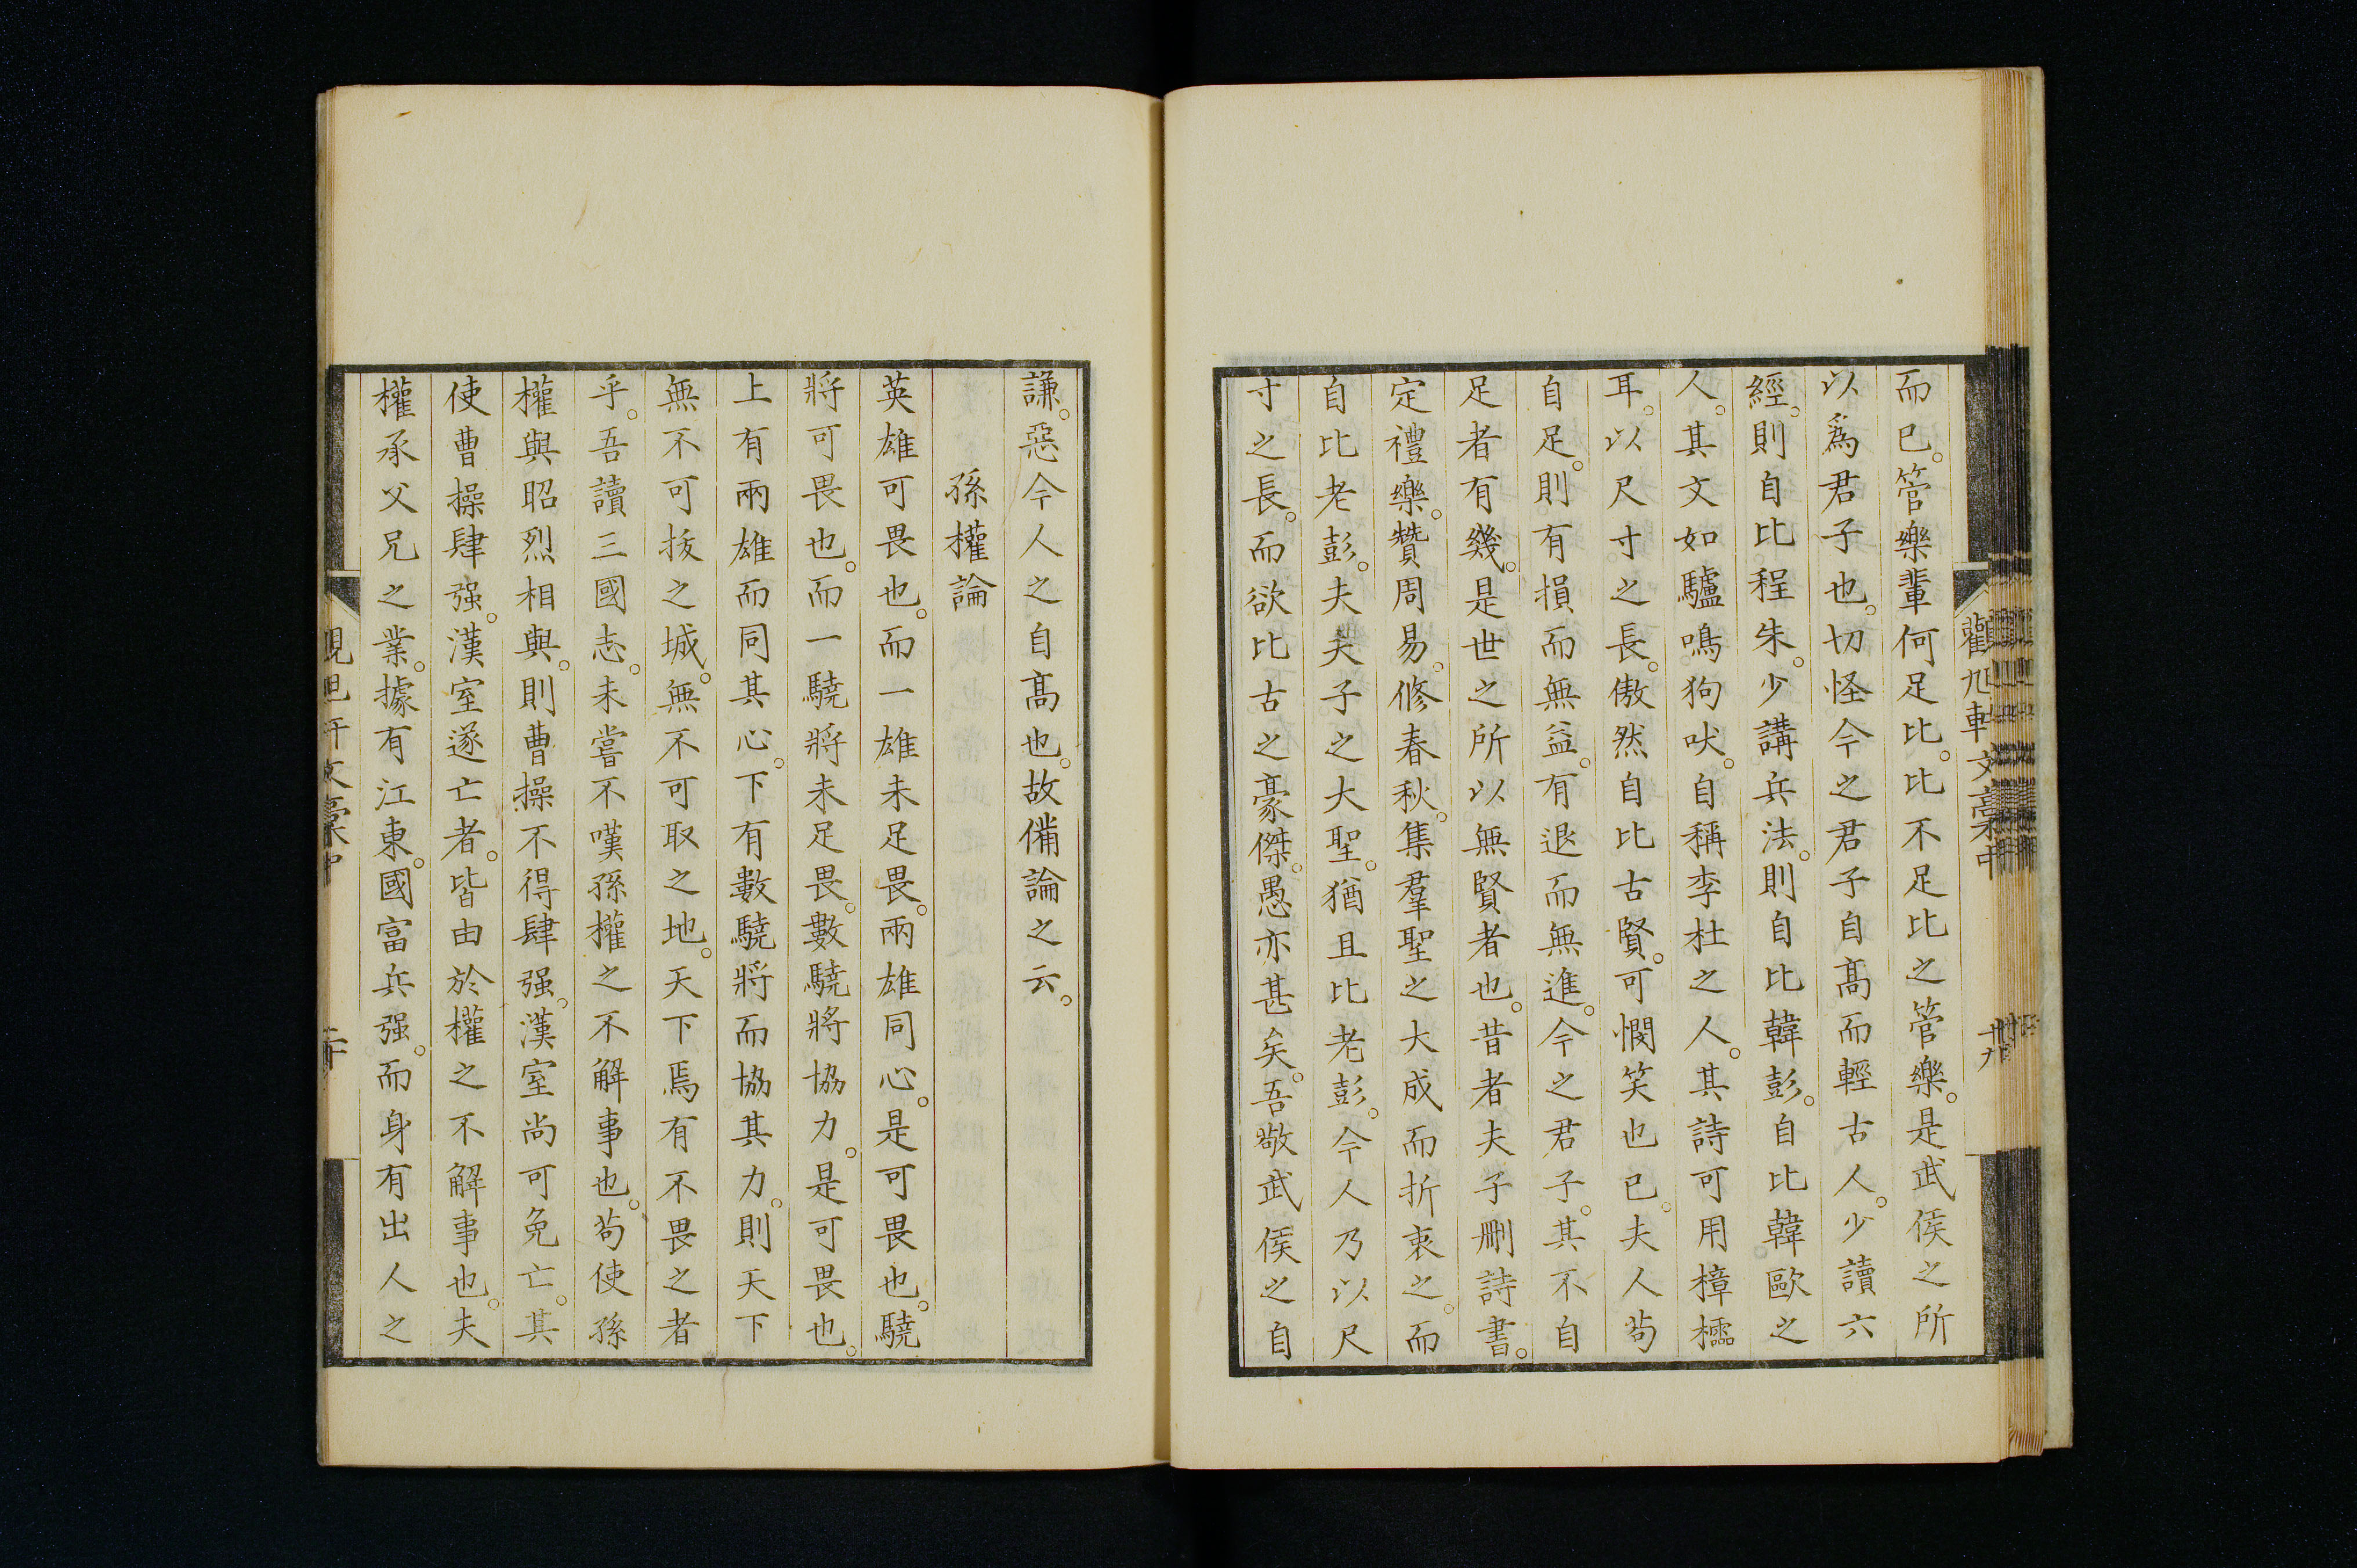 觀旭軒文稾中
廿九
而已。管樂輩何足比。比不足比之管樂。是武侯之所
以爲君子也。切怪今之君子自髙而輕古人。少讀六
經。則自比程朱。少講兵法。則自比韓彭。自比韓歐之
人。其文如驢鳴狗吠。自稱李杜之人。其詩可用樟櫺
耳。以尺寸之長。傲然自比古賢。可憫笑也已。夫人茍
自足。則有損而無益。有退而無進。今之君子。其不自
足者有幾。是世之所以無賢者也。昔者夫子刪詩書。
定禮樂。贊周易。修春秋。集羣聖之大成而折衷之。而
自比老彭。夫夫子之大聖。猶且比老彭。今人乃以尺
寸之長。而欲比古之豪傑。愚亦甚矣。吾敬武侯之自
謙。惡今人之自髙也。故備論之云。
孫權論
英雄可畏也。而一雄未足畏。兩雄同心。是可畏也。驍
將可畏也。而一驍將未足畏。數驍將協力。是可畏也。
上有兩雄而同其心。下有數驍將而協其力。則天下
無不可拔之城。無不可取之地。天下焉有不畏之者
乎。吾讀三國志。未嘗不嘆孫權之不解事也。茍使孫
權與昭烈相與。則曹操不得肆强。漢室尚可免亡。其
使曹操肆强。漢室遂亡者。皆由於權之不解事也。夫
權承父兄之業。據有江東。國富兵强。而身有出人之